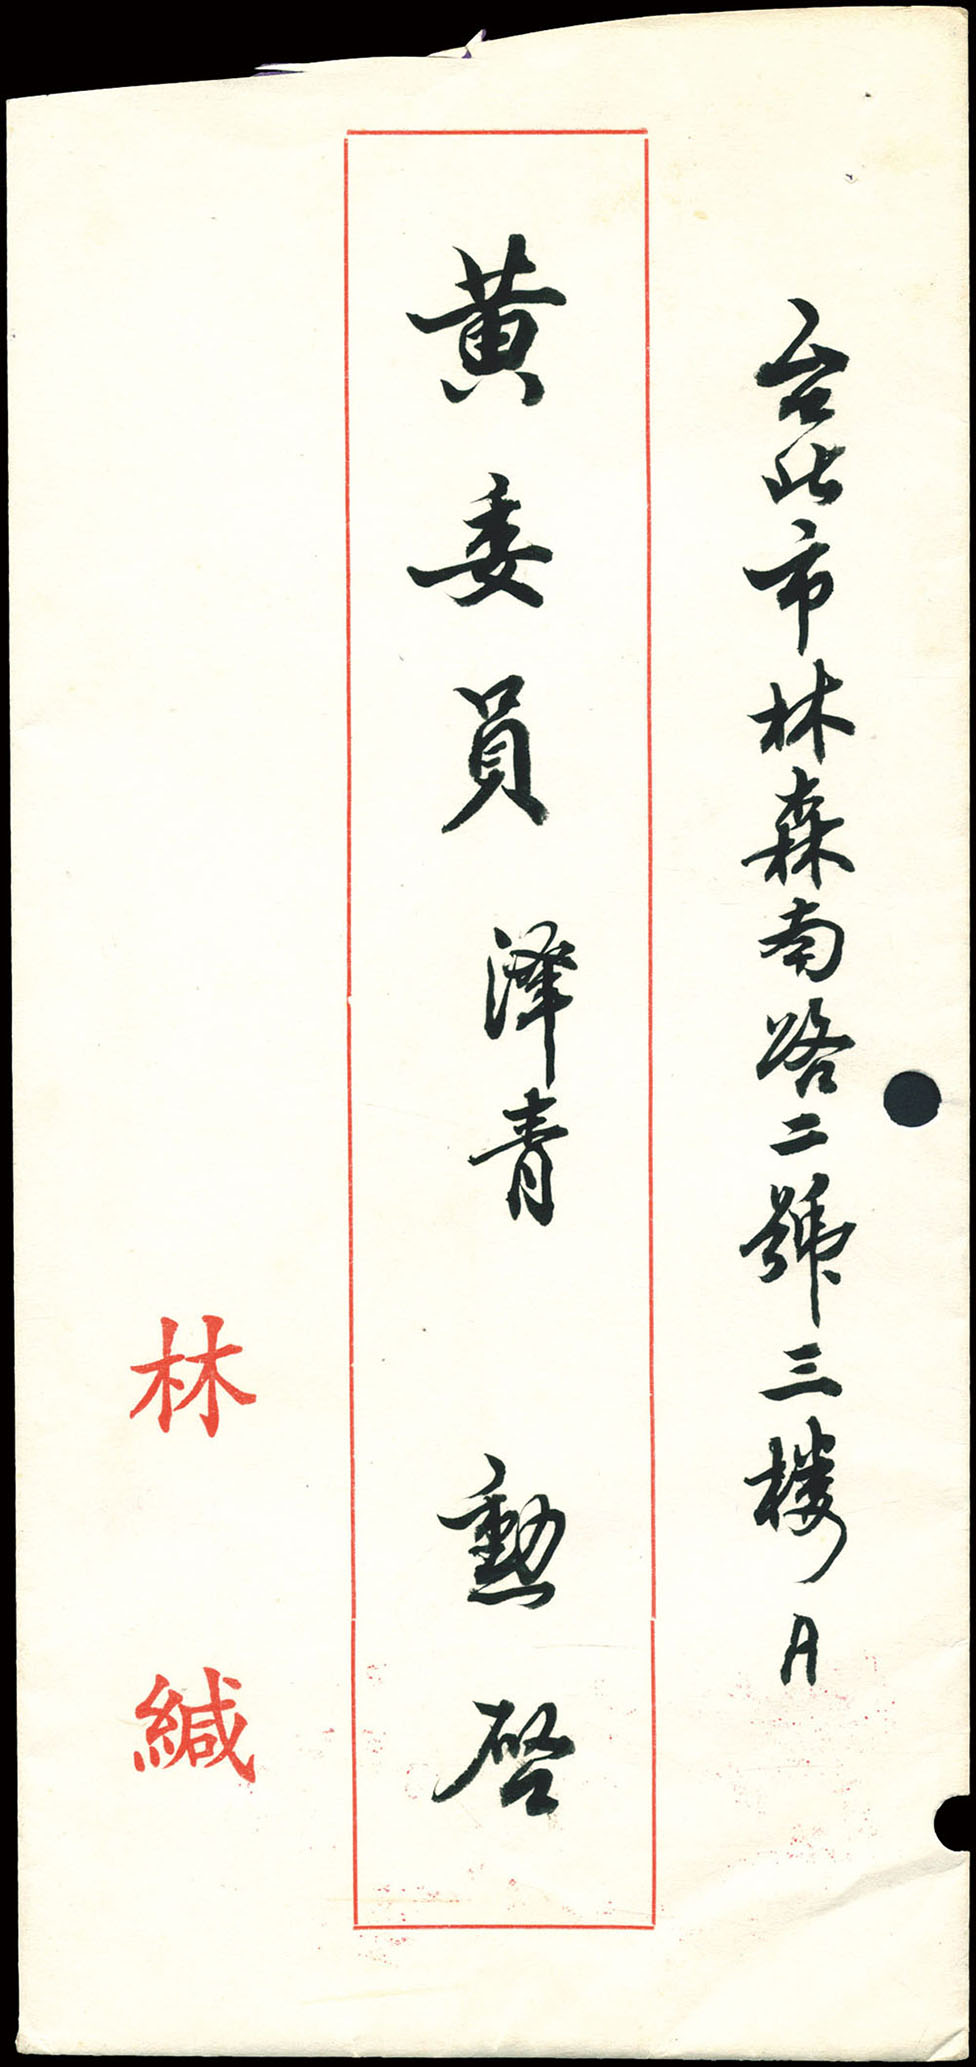 台北市林森南路二號三樓A
黃委員澤青 勳啓
林緘